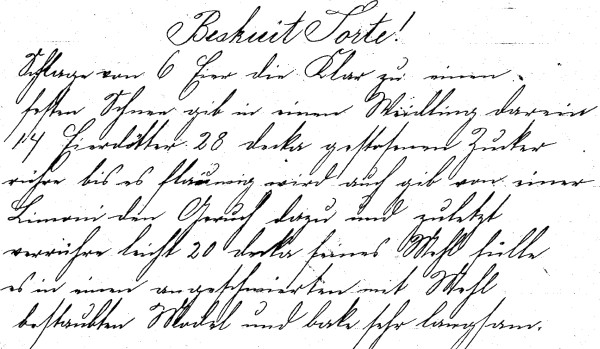 Beskuit Torte!
Schlage von 6 Eier die Klar zu einen
festen Schnee gib in einen Weidling darein
14 Eierdötter 28 decka gestosenen Zucker
rühre bis es flaumig wird auch gib von einer
Limoni den Geruch dazu und zuletzt
verrühre leicht 20 decka feines Mehl fülle
es in einen angeschmierten mit Mehl
bestaubten Model und bake sehr langsam.